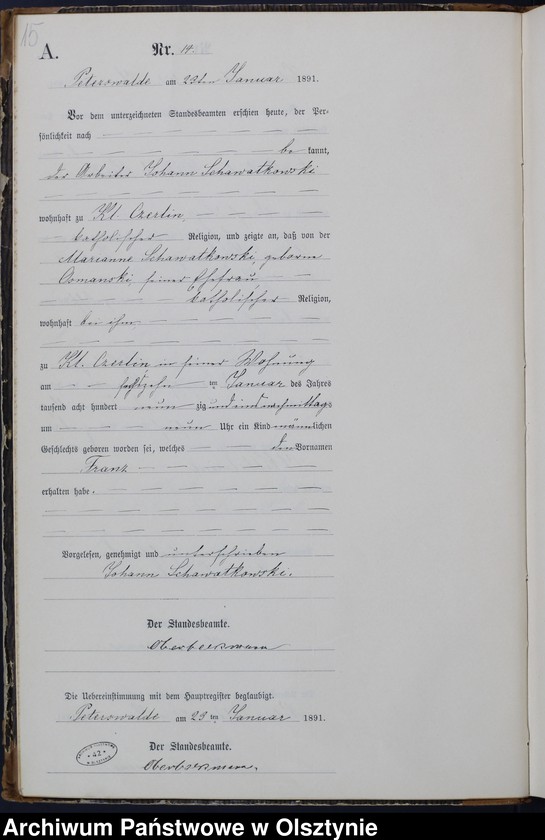 15
A.
Nr. 14.
Peterswalde am 23ten Januar 1891.
Vor dem unterzeichneten Standesbeamten erschien heute, der Per-
sönlichkeit nach
be kannt,
der Arbeiter Johann Schawatkowski
wohnhaft zu Kl. Czerlin,
katholischer Religion, und zeigte an, daß von der
Marianne Schawatkowski, geborne
Osmanski, seiner Ehefrau
katholischer Religion,
wohnhaft bei ihm
zu Kl. Czerlin in seiner Wohnung
am sechszehn ten Januar des Jahres
tausend acht hundert neun zig und eins nachmittags
um neun Uhr ein Kind männlichen
Geschlechts geboren worden sei, welches den Vornamen
Franz
erhalten habe.
Vorgelesen, genehmigt und unterschrieben
Johann Schawatkowski.
Der Standesbeamte.
Die Uebereinstimmung mit dem Hauptregister beglaubigt.
Peterswalde am 23 ten Januar 1891.
Der Standesbeamte.
42
Archiwum Państwowe w Olsztynie